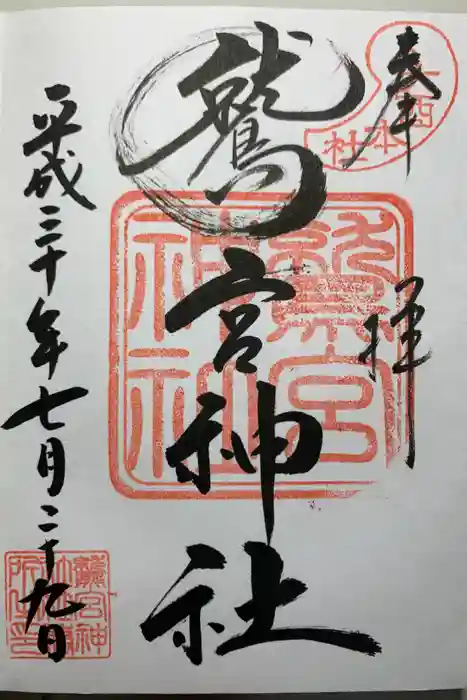 奉拝
酉
本社
鷲宮神社
鷲宮神社
平成三十年七月二十九日